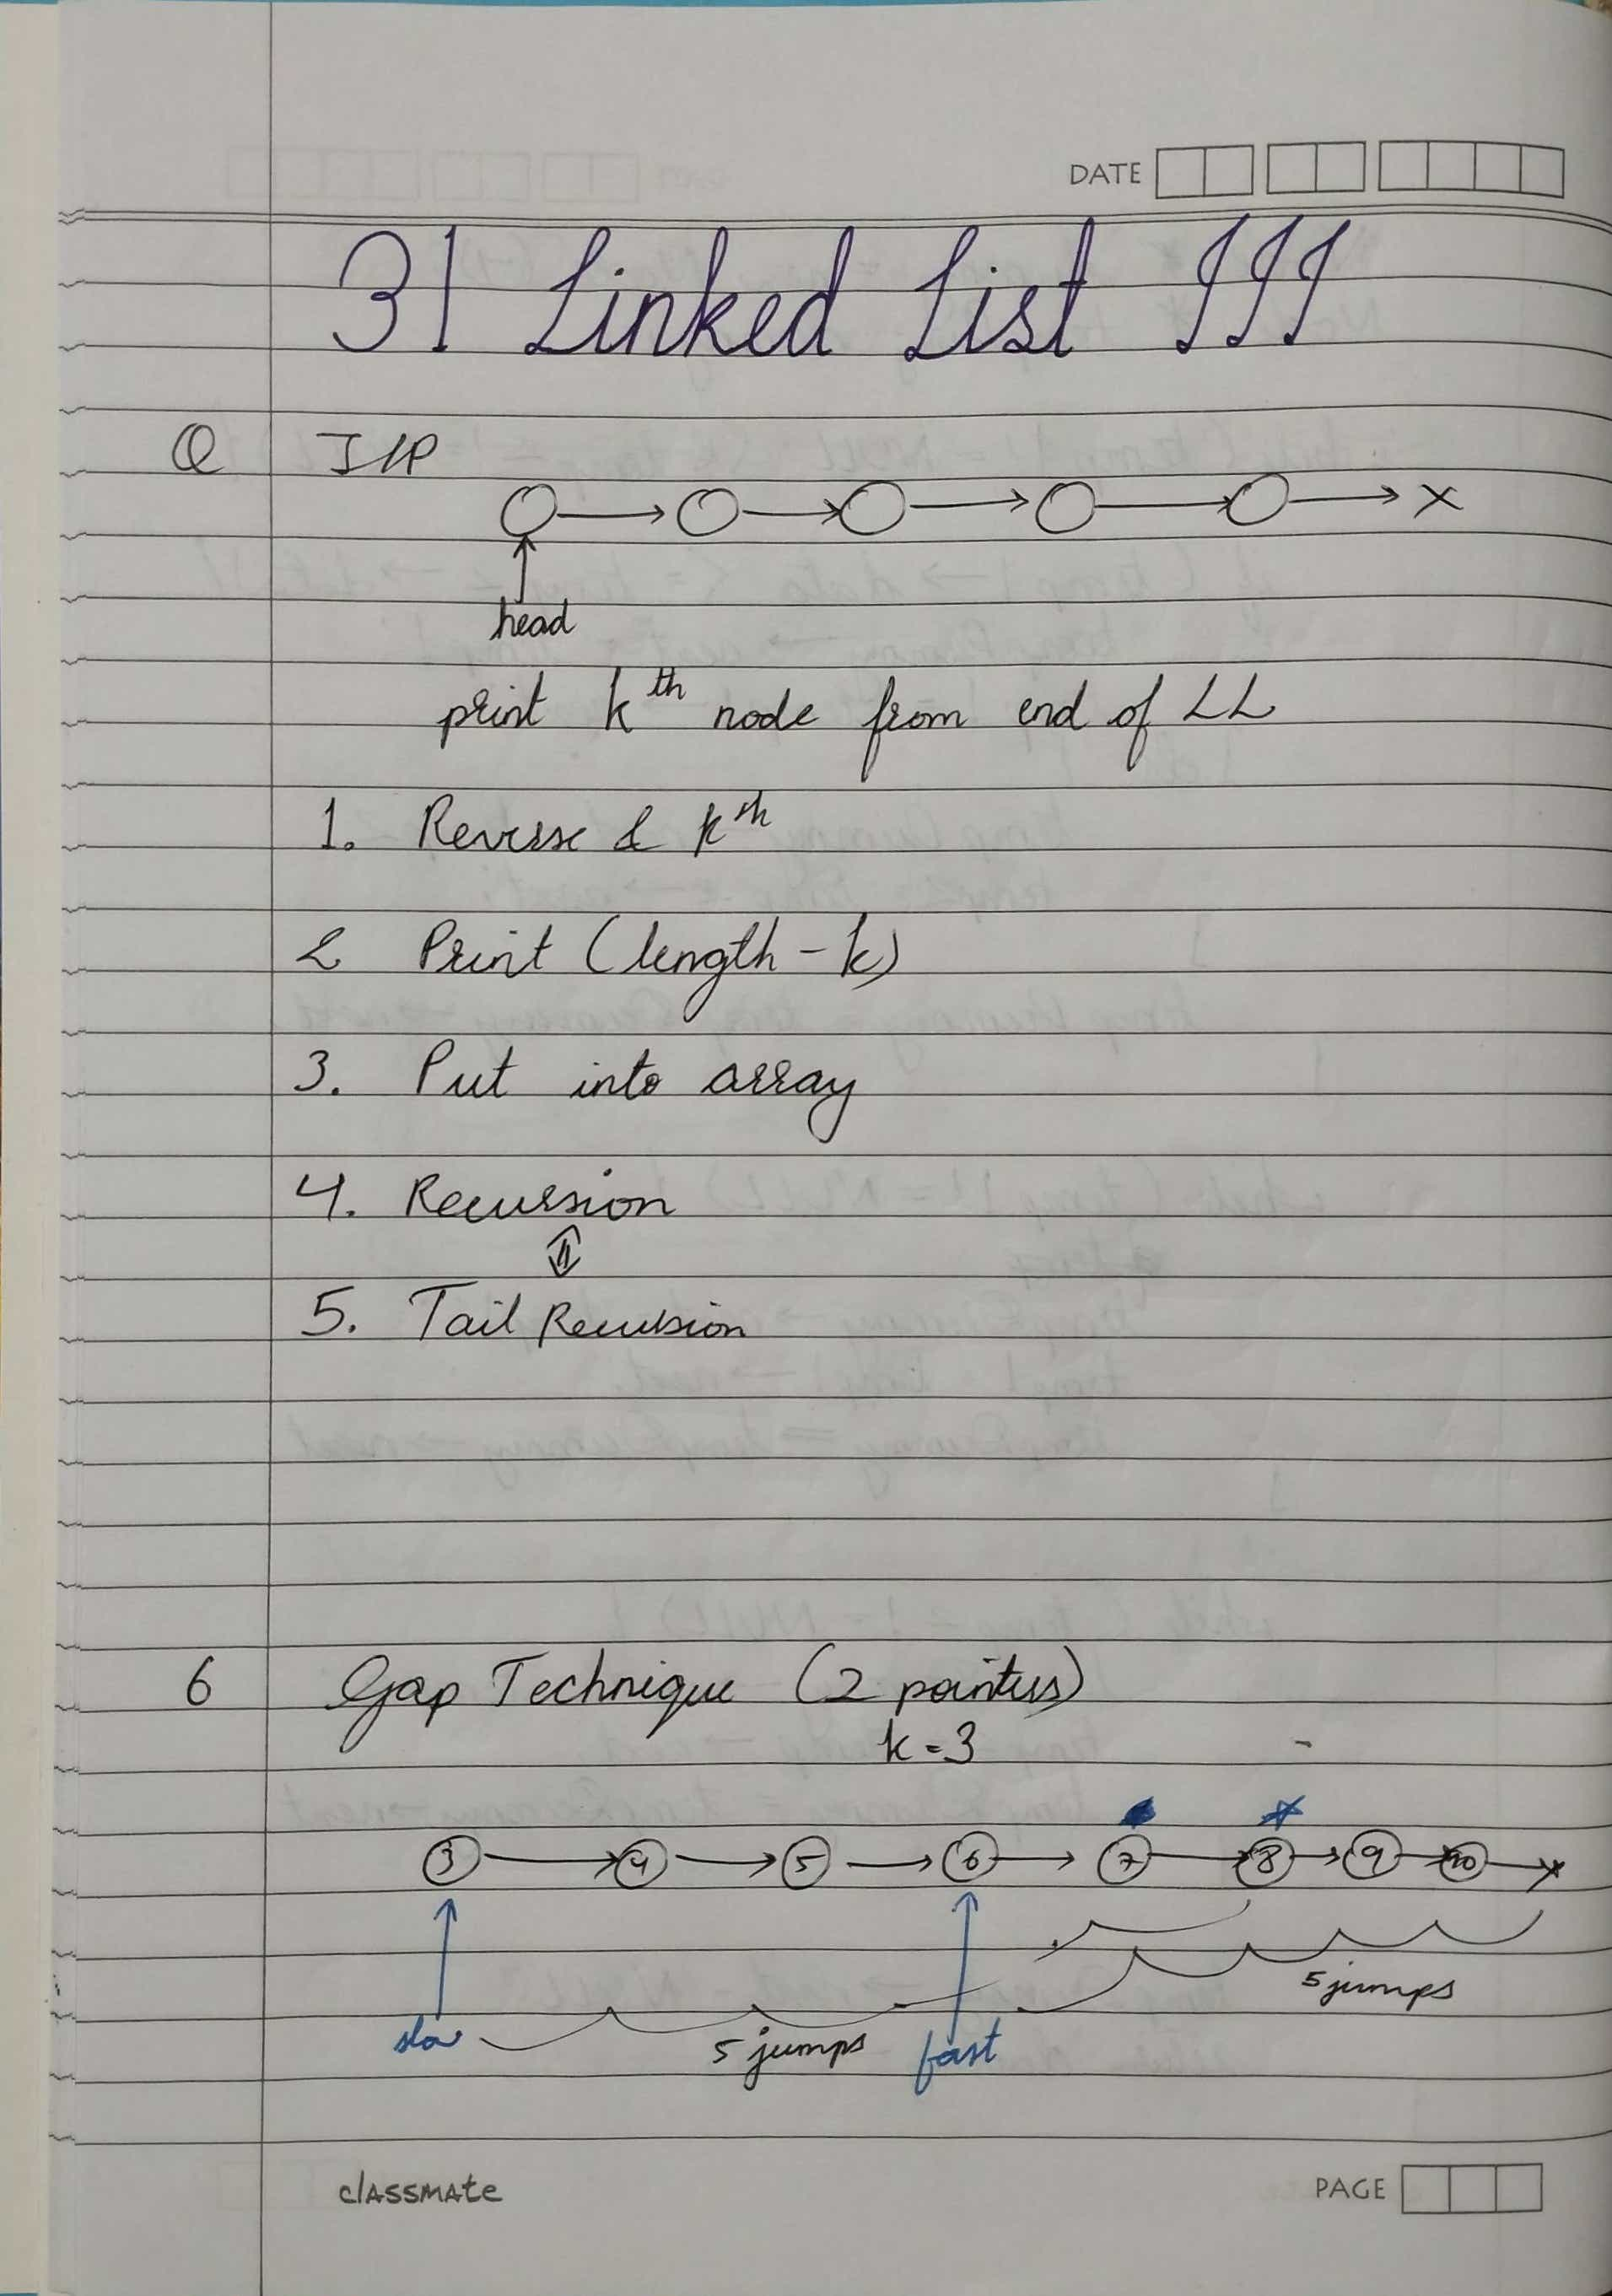 DATE
31 Linked List III
Q I/P
→ → → → → X
↑
head
print kth node from end of LL
1. Reverse & kth
2 Print (length - k)
3. Put into array
4. Recursion
⇕
5. Tail Recursion
6 Gap Technique (2 pointers)
k = 3
3 → 4 → 5 → 6 → 7 → 8 → 9 → 10 → x
5 jumps
slow 5 jumps fast
classmate PAGE